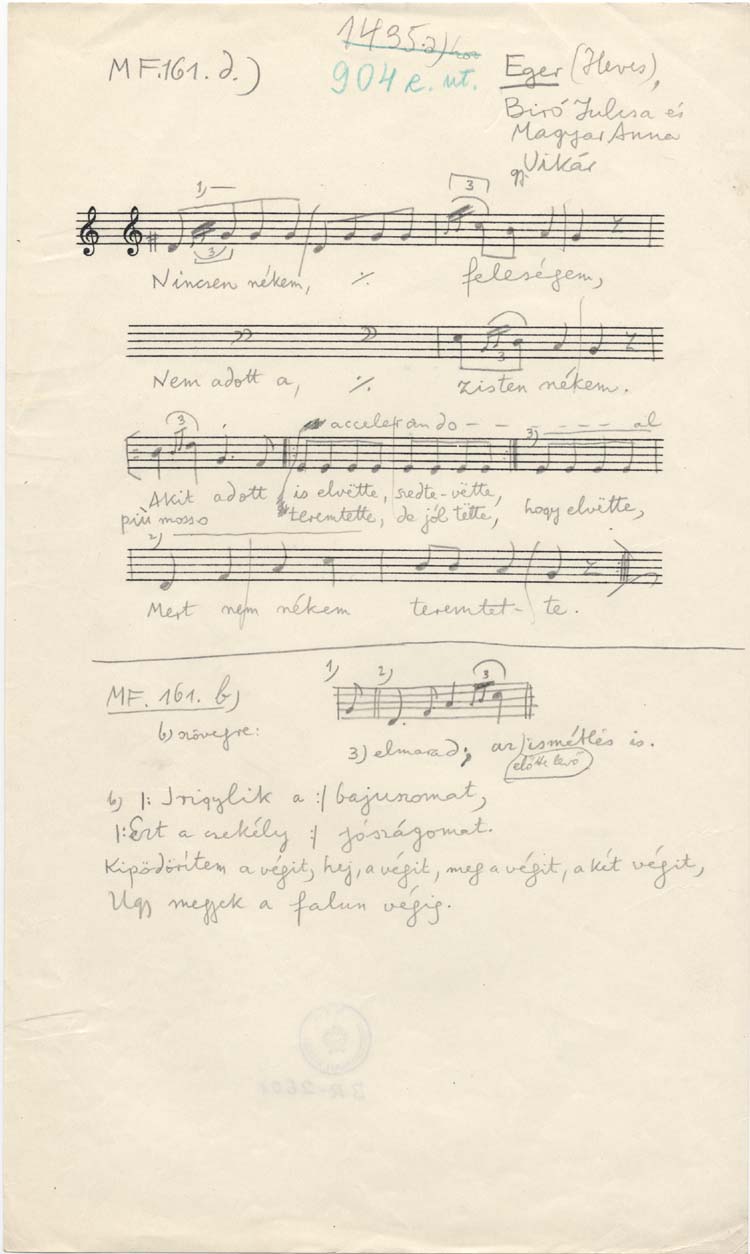 MF.161.d.)
1435.a)
904 e. ut.
Eger (Heves),
Biró Julcsa és
Magyar Anna
gy Vikár
1)
3
3
Nincsen nékem, ·/. feleségem,
3
Nem adott a, ·/. zisten nékem.
3
accelerando - - - - - - al
3)
Akit adott is elvëtte, vëtte, hogy elvëtte,
più mosso teremtette, de jól tëtte,
2)
Mert nem nékem teremtet-te.
1) 2) 3
MF. 161. b)
b) szövegre:
3) elmarad; az ismétlés is.
előtte levő
b) |: Irigylik a :| bajuszomat,
|: Ezt a csekély :| jószágomat.
Kipödörítem a végit, hej, a végit, meg a végit, a két végit,
Ugy megyek a falun végig.